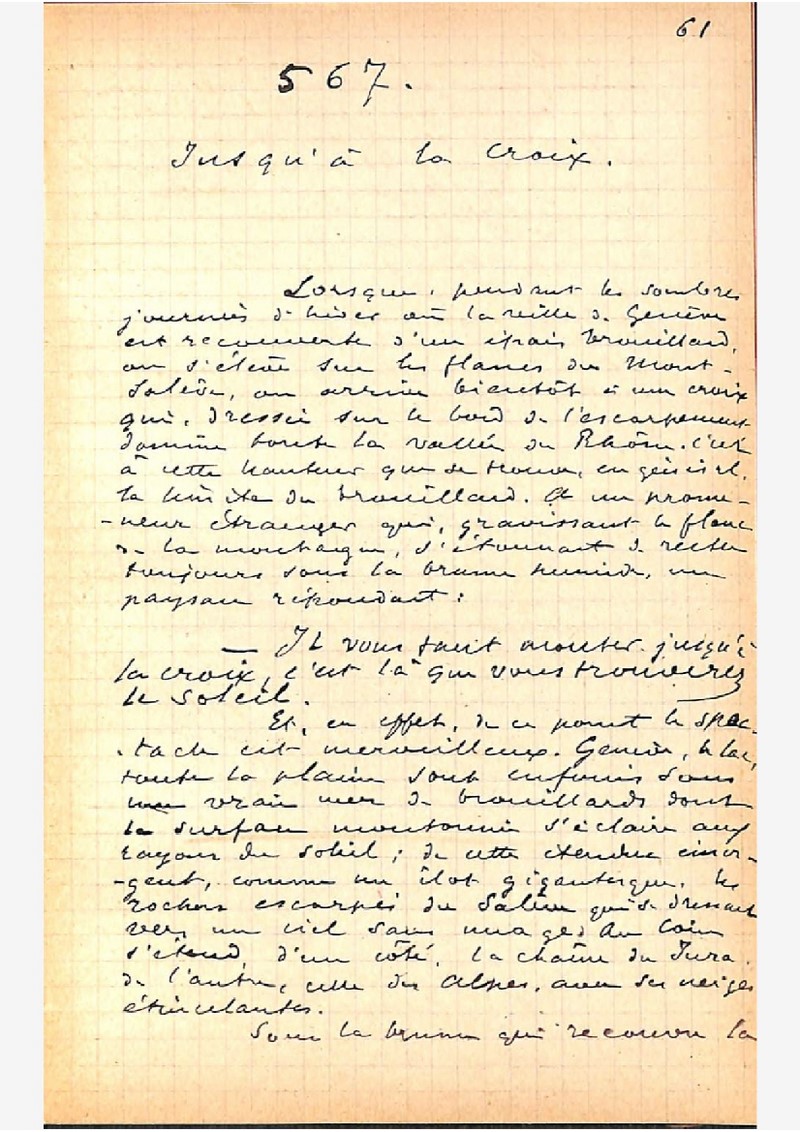 61
567.
Jusqu'à la Croix.
Lorsque, pendant les sombres
journées d'hiver où la ville de Genève
est recouverte d'un épais brouillard,
on s'élève sur les flancs du Mont-
Salève, on arrive bientôt à une croix
qui, dressée sur le bord de l'escarpement
domine toute la vallée du Rhône. C'est
à cette hauteur que se trouve, en général,
la limite du brouillard. A un prome-
-neur étranger qui, gravissant le flanc
de la montagne, s'étonnait de rester
toujours sous la brume humide, un
paysan répondait :
— Il vous faut monter jusqu'à
la croix, c'est là que vous trouverez
le soleil.
Et, en effet, de ce point le spec-
-tacle est merveilleux. Genève, le lac,
toute la plaine sont enfouis sous
une vraie mer de brouillards dont
la surface moutonnée s'éclaire aux
rayons du soleil ; de cette étendue émer-
-gent, comme un îlot gigantesque, les
rochers escarpés du Salève qui se dressent
vers un ciel sans nuages. Au loin
s'étend, d'un côté, la chaîne du Jura,
de l'autre, celle des Alpes, avec ses neiges
étincelantes.
Sous la brume qui recouvre la